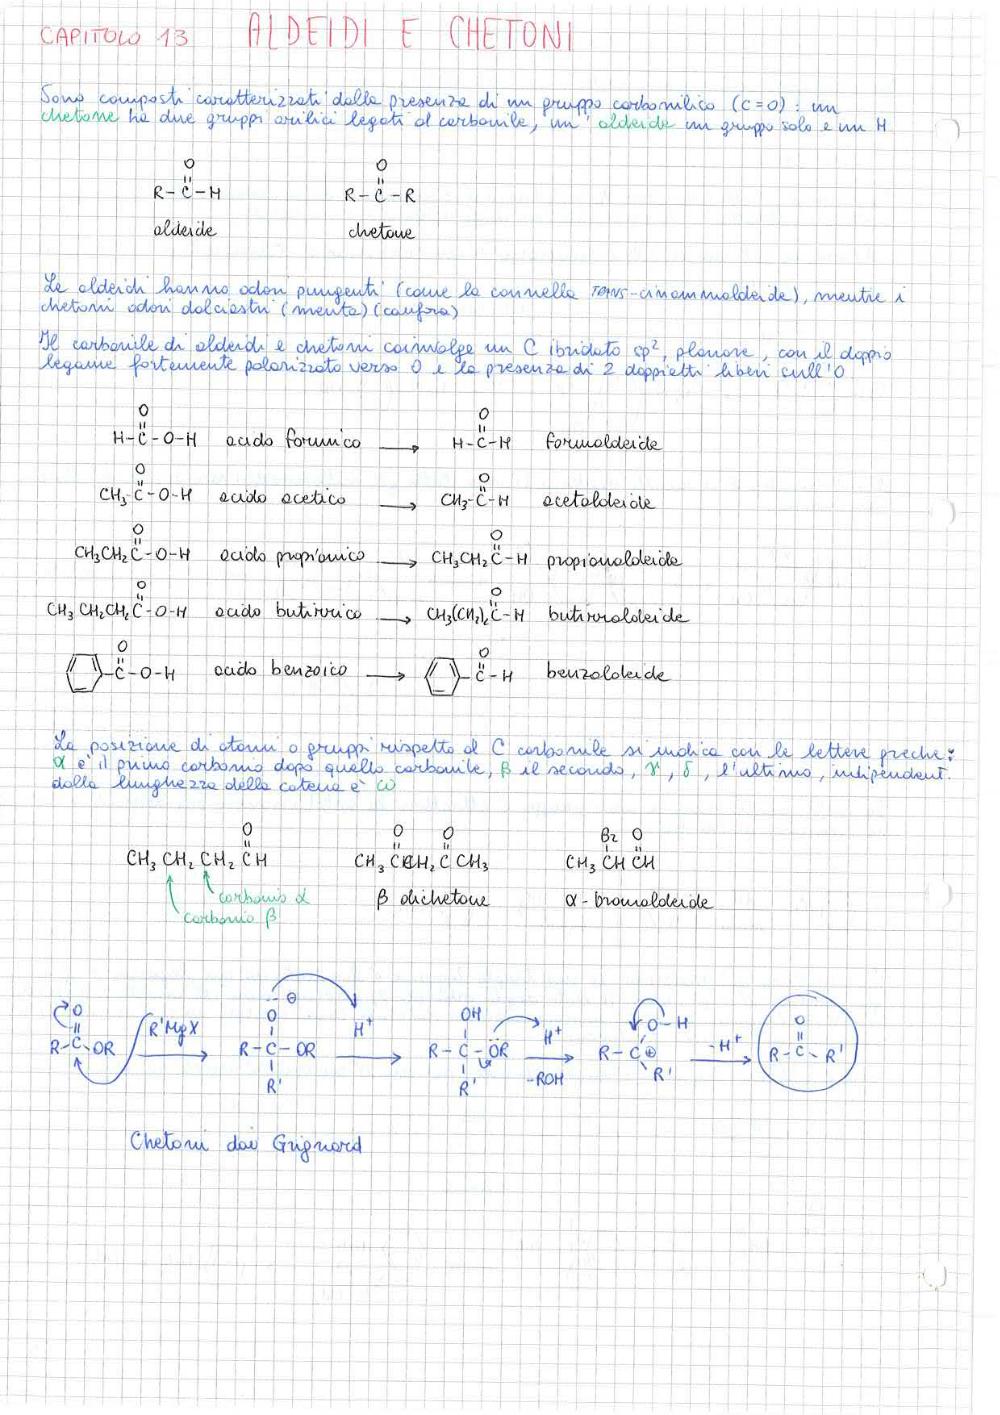 CAPITOLO 13 ALDEIDI E CHETONI
Sono composti caratterizzati dalla presenza di un gruppo carbonilico (C=O) : un
chetone ha due gruppi arilici legati al carbonile, un' aldeide un gruppo solo e un H
O O
R-C-H R-C-R
aldeide chetone
Le aldeidi hanno odori pungenti (come la cannella TRANS-cinammaldeide), mentre i
chetoni odori dolciastri (menta) (canfora)
Il carbonile di aldeidi e chetoni coinvolge un C ibridato sp², planare, con il doppio
legame fortemente polarizzato verso O e la presenza di 2 doppietti liberi sull'O
O O
H-C-O-H acido formico → H-C-H formaldeide
O O
CH₃-C-O-H acido acetico → CH₃-C-H acetaldeide
O O
CH₃CH₂C-O-H acido propionico → CH₃CH₂C-H propionaldeide
O O
CH₃CH₂CH₂C-O-H acido butirrico → CH₃(CH₂)₂C-H butirraldeide
O O
C-O-H acido benzoico → C-H benzaldeide
La posizione di atomi o gruppi rispetto al C carbonile si indica con le lettere greche:
α è il primo carbonio dopo quello carbonile, β il secondo, γ, δ, l'ultimo, independent.
dalla lunghezza della catena è ω
O O O Br O
CH₃ CH₂ CH₂ CH CH₃ CCH₂ C CH₃ CH₃ CH CH
carbonio α β dichetone α-bromaldeide
carbonio β
⊖
O O OH O-H O
R-C OR R'MgX → R-C-OR H⁺ → R-C-ÖR H⁺ -ROH → R-C⊕ -H⁺ → R-C-R'
R' R' R'
Chetoni dai Grignard